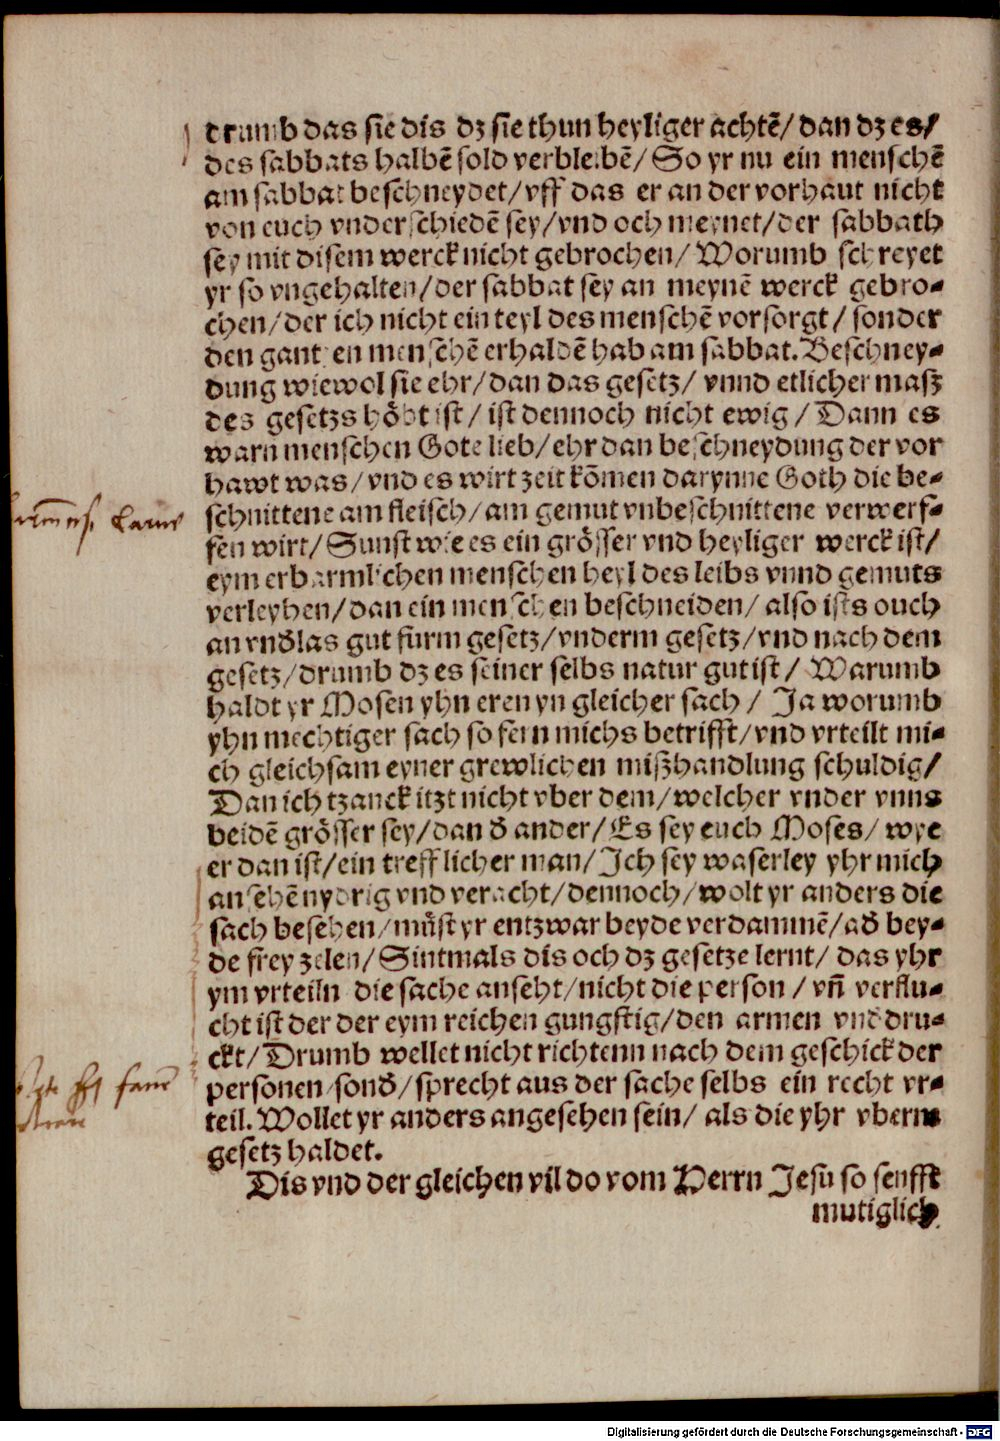 drumb das sie dis dz sie thun heyliger achtē/ dan dz es/
des sabbats halbē sold verbleibē/ So yr nu ein menschē
am sabbat beschneydet/ vff das er an der vorhaut nicht
von euch vnderschiedē sey/ vnd och meynet/ der sabbath
sey mit disem werck nicht gebrochen/ Worumb schreyet
yr so vngehalten/ der sabbat sey an meynē werck gebro-
chen/ der ich nicht ein teyl des menschē vorsorgt/ sonder
den gantzen menschē erhaldē hab am sabbat. Beschney-
dung wiewol sie ehr/ dan das gesetz/ vnnd etlicher masz
des gesetzs höbt ist/ ist dennoch nicht ewig/ Dann es
warn menschen Gote lieb/ ehr dan beschneydung der vor
hawt was/ vnd es wirt zeit kōmen darynne Goth die be-
schnittene am fleisch/ am gemut vnbeschnittene verwerf-
fen wirt/ Sunst wie es ein grösser vnd heyliger werck ist/
eym erbarmlichen menschen heyl des leibs vnnd gemuts
verleyhen/ dan ein menschen beschneiden/ also ists ouch
an vnd᷎las gut furm gesetz/ vnderm gesetz/ vnd nach dem
gesetz/ drumb dz es seiner selbs natur gut ist/ Warumb
haldt yr Mosen yhn eren yn gleicher sach/ Ja worumb
yhn mechtiger sach so fern michs betrifft/ vnd vrteilt mi-
ch gleichsam eyner grewlichen miszhandlung schuldig/
Dan ich tzanck itzt nicht vber dem/ welcher vnder vnns
beidē grösser sey/ dan d᷎ ander/ Es sey euch Moses/ wye
er dan ist/ ein trefflicher man/ Ich sey waserley yhr mich
ansehē nydrig vnd veracht/ dennoch/ wolt yr anders die
sach besehen/ müst yr entzwar beyde verdammē/ ad᷎ bey-
de frey zelen/ Sintmals dis och dz gesetze lernt/ das yhr
ym vrteiln die sache anseht/ nicht die person/ vn̄ verflu-
cht ist der der eym reichen gungstig/ den armen vnddru-
ckt/ Drumb wellet nicht richtenn nach dem geschick der
personen sond᷎/ sprecht aus der sache selbs ein recht vr-
teil. Wollet yr anders angesehen sein/ als die yhr vberm
gesetz haldet.
Dis vnd der gleichen vil do vom Herrn Jesu so senfft
mutiglich
Digitalisierung gefördert durch die Deutsche Forschungsgemeinschaft - DFG